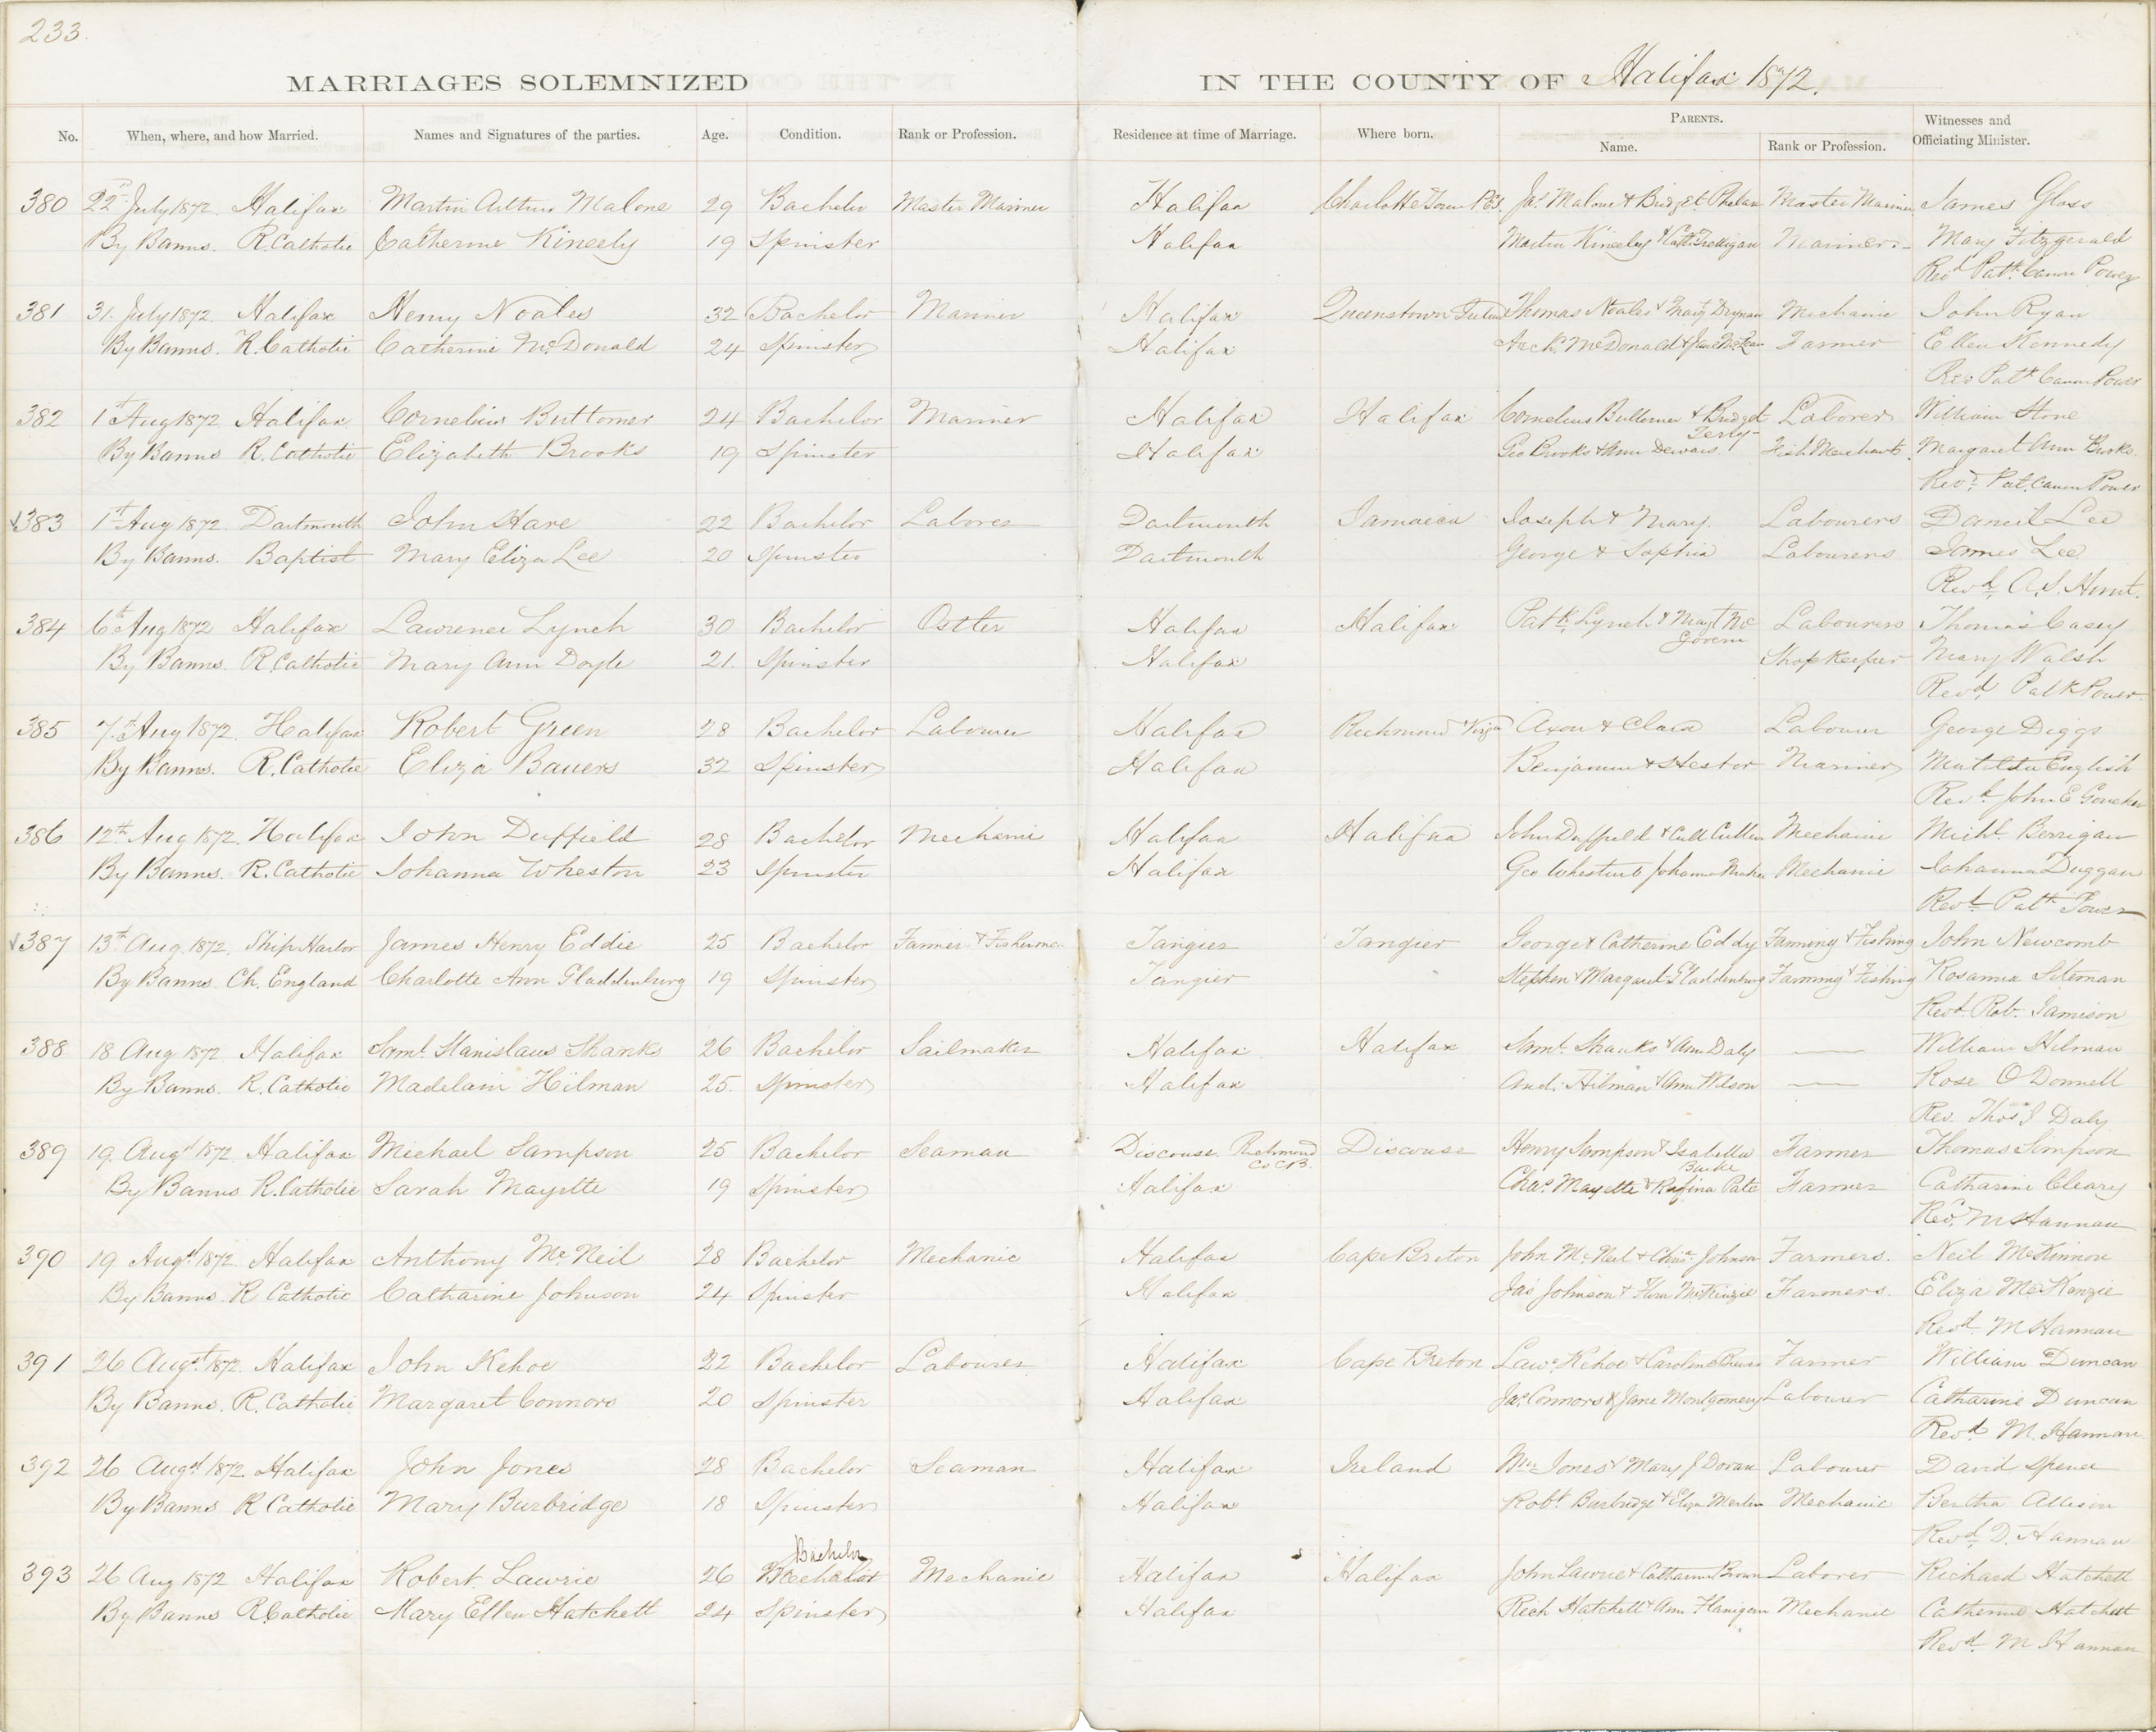 233.
MARRIAGES SOLEMNIZED IN THE COUNTY OF Halifax 1872.
No. When, where, and how Married. Names and Signatures of the parties. Age. Condition. Rank or Profession. Residence at time of Marriage. Where born. PARENTS. Name. Rank or Profession. Witnesses and Officiating Minister.
380 22nd July 1872. Halifax Martin Arthur Malone 29 Bachelor Master Mariner Halifax Charlotte Town P.E.I. Jas. Malone & Bridget Phelan Master Mariner James Gloss
By Banns. R. Catholic Catherine Kineely 19 Spinster Halifax Martin Kineely & Cath. Mariner Mary Fitzgerald
Revd Patk. Canon Power
381 31. July 1872. Halifax Henry Noales 32 Bachelor Mariner Halifax Queenstown Thomas Noales & Mary Drynan Mechanic John Ryan
By Banns. R. Catholic Catherine McDonald 24 Spinster Halifax Archd. McDonald & Jane McLean Farmer Ellen Kennedy
Rev Patk Canon Power
382 1st Aug 1872 Halifax Cornelius Buttomer 24 Bachelor Mariner Halifax Halifax Cornelius Buttomer & Bridget Terry Laborer William Stone
By Banns R. Catholic Elizabeth Brooks 19 Spinster Halifax Geo Brooks & Ann Fish Merchant Margaret Ann Brooks.
Revd. Pat. Canon Power
383 1st Aug 1872. Dartmouth John Hare 22 Bachelor Laborer Dartmouth Jamaica Joseph & Mary. Labourers Daneil Lee
By Banns. Baptist Mary Eliza Lee 20 Spinster Dartmouth George & Sophia Labourers James Lee
Revd. A.S. Hunt.
384 6th Aug 1872 Halifax Lawrence Lynch 30 Bachelor Ostler Halifax Halifax Patk. Lynch & Margt Mc Govern Labourers Thomas Casey
By Banns. R. Catholic Mary Ann Doyle 21. Spinster Halifax Shop Keeper Mary Walsh
Revd Patk Power
385 7th Aug 1872. Halifax Robert Green 28 Bachelor Labourer Halifax Richmond Virga Axon & Clara Labourer George Diggs
By Banns. R. Catholic Eliza Bauers 32 Spinster Halifax Benjamin & Hestor Mariner Matilda English
Revd. John E
386 12th Aug 1872. Halifax John Duffield 28 Bachelor Mechanic Halifax Halifax John Duffield & Cath Cullen Mechanic Michl. Berrigan
By Banns. R. Catholic Johanna Wheston 23 Spinster Halifax Geo Johanna Mechanic Johanna Duggan
Revd. Patk Power
387 13th Aug. 1872. Ship Harbor James Henry Eddie 25 Bachelor Farmer & Fisherman Tangier Tangier George & Catherine Eddy Farming & Fishing John Newcomb
By Banns Ch. England Charlotte Ann Gladdenburg 19 Spinster Tangier Stephen & Margaret Gladdenburg Farming & Fishing Rosanna Siteman
Revd. Rob. Jamison
388 18 Aug 1872 Halifax Saml. Stanislaus Shanks 26 Bachelor Sailmaker Halifax Halifax Saml. Shanks & Ann Daly — William Hilman
By Banns. R. Catholic Madelain Hilman 25. Spinster Halifax And. Hilman & Ann Wilson — Rose O'Donnell
Rev. Thos J Daly
389 19. Augt 1872. Halifax Michael Sampson 25 Bachelor Seaman Discouse Richmond Co C.B. Discouse Henry Sampson & Isabella Farmer Thomas Sampson
By Banns R. Catholic Sarah Mayette 19 Spinster Halifax Chas. Mayette & Rufina Pate Farmer Catharine Cleary
Revd. M Hannan
390 19 Augt. 1872. Halifax Anthony McNeil 28 Bachelor Mechanic Halifax Cape Breton John McNeil & Chisn. Johnson Farmers. Neil McKinnon
By Banns R Catholic Catharine Johnson 24 Spinster Halifax Jas Johnson & Flora McKenzie Farmers. Eliza McKenzie
Revd. M Hannan
391 26 Augt. 1872. Halifax John Kehoe 22 Bachelor Labourer Halifax Cape Breton Lawe. Kehoe & Caroline Farmer William Duncan
By Banns. R. Catholic Margaret Connors 20 Spinster Halifax Jas. Connors & Jane Montgomery Labourer Catharine Duncan
Revd. M. Hannan
392 26 Augt 1872. Halifax John Jones 28 Bachelor Seaman Halifax Ireland Wm Jones & Mary J Doran Labourer David Spence
By Banns R Catholic Mary Burbridge 18 Spinster Halifax Robt. Burbridge & Eliza Merlin Mechanic Bertha Allison
Revd. D. Hannan
Bachelor
393 26 Aug 1872 Halifax Robert Lawrie 26 Bachelor Mechanic Halifax Halifax John Lawrie & Catharine Brown Laborer Richard Hatchett
By Banns R Catholic Mary Ellen Hatchett 24 Spinster Halifax Rich Hatchett & Ann Flanigan Mechanic Catherine Hatchett
Revd. M Hannan